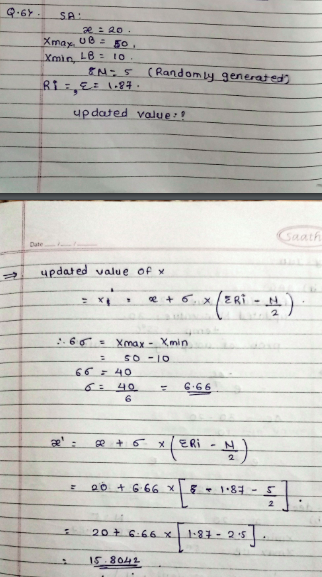 Q.64. SA:
x = 20.
Xmax, UB = 50.
Xmin, LB = 10.
N = 5 (Randomly generated)
Ri =, Σ = 1.87.
updated value = ?
Saath
Date
⇒ updated value of x
= x' = x + σ × (ΣRi - N/2).
∴ 6σ = Xmax - Xmin
= 50 - 10
6σ = 40
σ = 40/6 = 6.66
x' = x + σ × (ΣRi - N/2)
= 20 + 6.66 × [1.87 - 5/2].
= 20 + 6.66 × [1.87 - 2.5].
= 15.8042